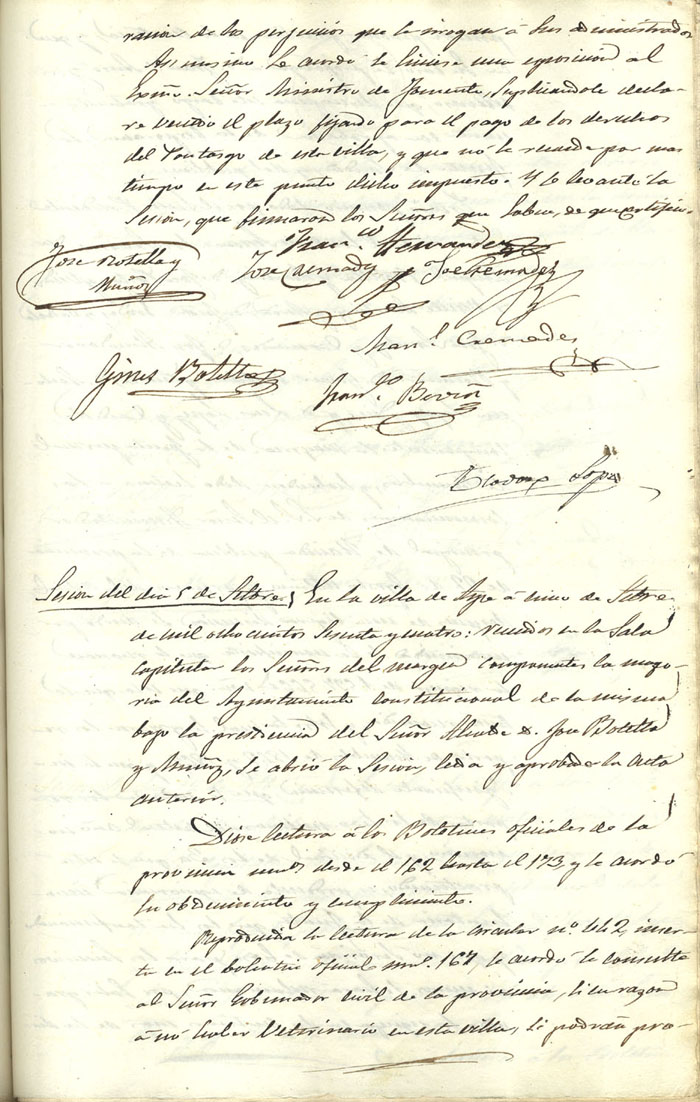 racion de los perjuicios que le irrogan á sus administrados
Asimismo se acordó se hiciese una esposicion al
Exmo. Señor Ministro de Fomento, suplicandole decla-
re vencido el plazo fijado para el pago de los derechos
del Pontasgo de esta villa, y que no se recaude por mas
tiempo en este punto dicho impuesto. Y se levantó la
Sesion, que firmaron los Señores que saben, de que certifico.
José Botella y
Muñoz
Fran.co Hernandez
José Cremades
José Fernandez
Man.l Cremades
Gines Botella
Fran.co
Lopez
Sesion del dia 5 de Setbre. En la villa de Aspe á cinco de Setbre
de mil ochocientos sesenta y cuatro: reunidos en la Sala
capitular los Señores del margen componentes la mayo-
ria del Ayuntamiento constitucional de la misma
bajo la presidencia del Señor Alcalde D. José Botella
y Muñoz, se abrió la Sesion, leida y aprobada la acta
anterior.
Diose lectura á los Boletines oficiales de la
provincia desde el 162 hasta el 173, y se acordó
su obedecimiento y cumplimiento.
Reproducida la lectura de la circular nº. 642, inser-
ta en el boletin oficial num.º 167, se acordó se consulte
al Señor Gobernador civil de la provincia, si en razon
á no haber Veterinario en esta villa, se podrán pro-